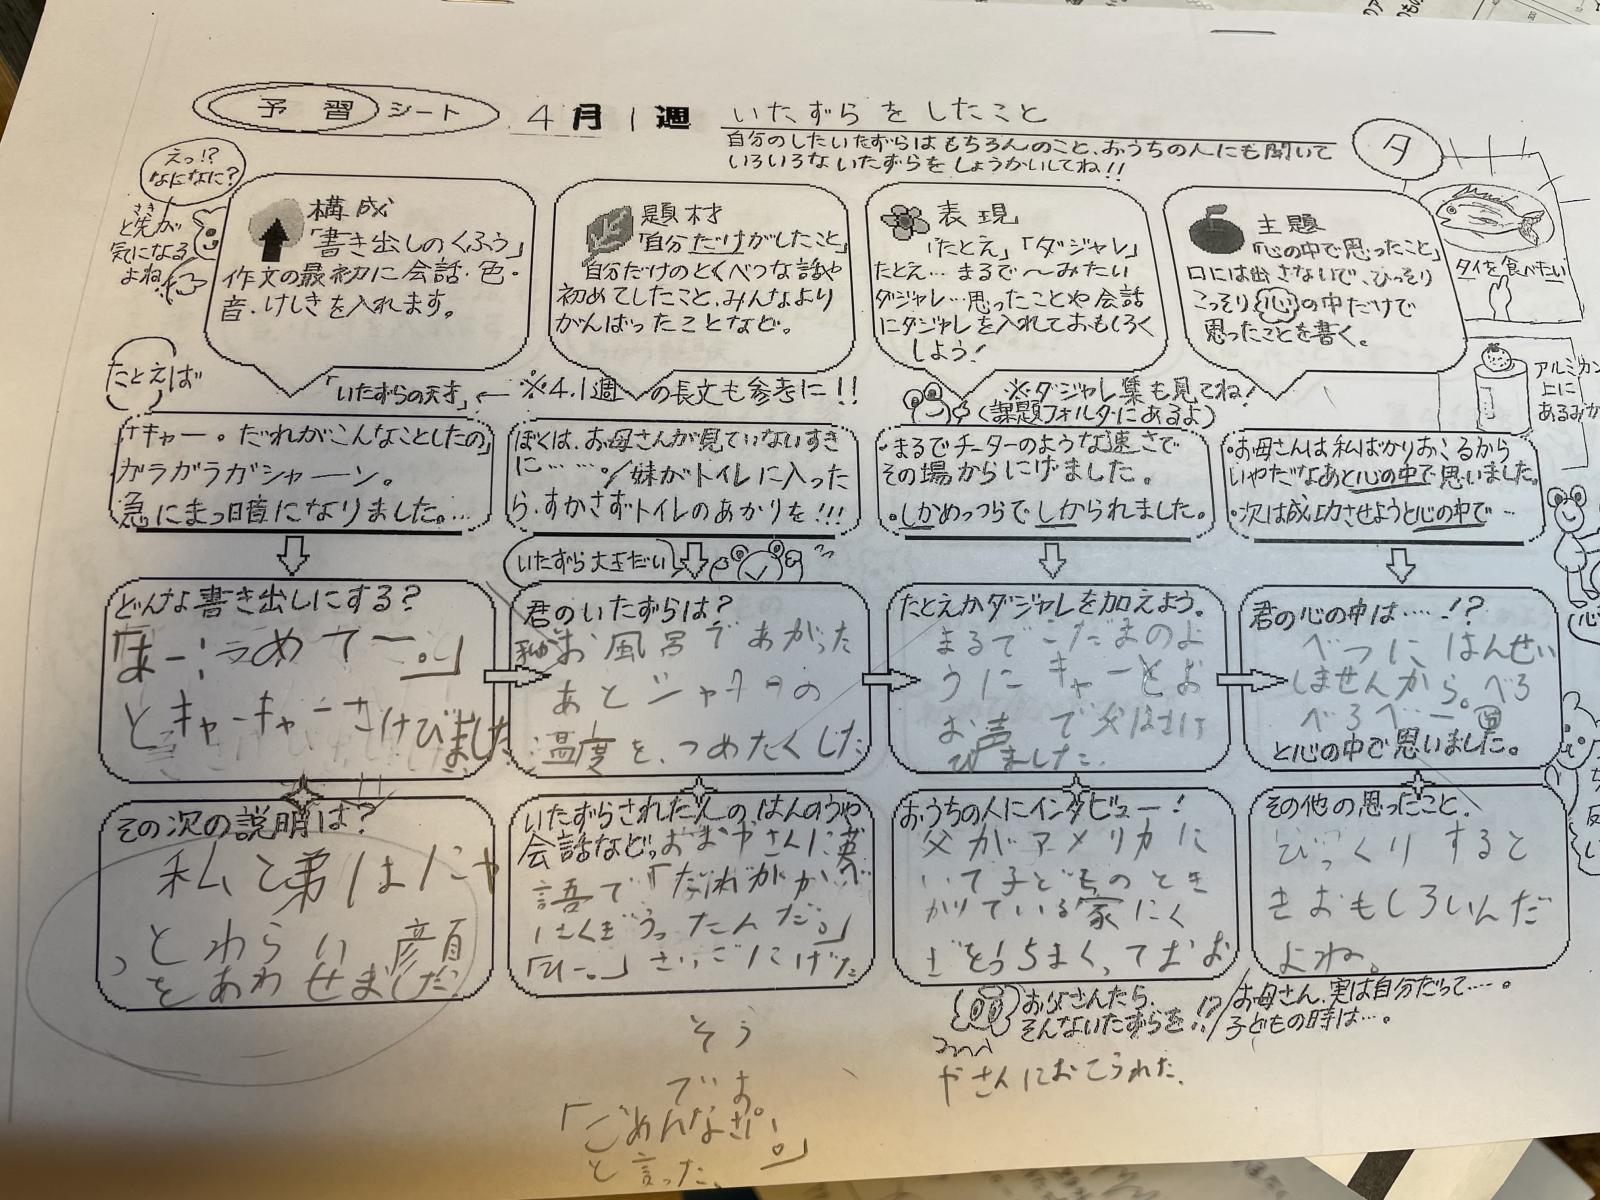 予習シート 4月1週 いたずらをしたこと
自分のしたいたずらはもちろんのこと、おうちの人にも聞いて
いろいろないたずらをしょうかいしてね!!
タ
えっ!?
なになに?
さき
と先が
気になる
よね。
構成
「書き出しのくふう」
作文の最初に会話・色・
音・けしきを入れます。
題材
「自分だけがしたこと」
自分だけのとくべつな話や
初めてしたこと、みんなより
がんばったことなど。
表現
「たとえ」「ダジャレ」
たとえ…まるで〜みたい
ダジャレ…思ったことや会話
にダジャレを入れておもしろく
しよう!
主題
「心の中で思ったこと」
口には出さないで、ひっそり
こっそり心の中だけで
思ったことを書く。
タイを食べたい
アルミカン
上に
あるみか
たとえば
「いたずらの天才」←
※4.1週の長文も参考に!!
※ダジャレ集も見てね!
(課題フォルダにあるよ)
「キャー。だれがこんなことしたの」
ガラガラガシャーン。
急にまっ暗になりました。…
ぼくは、お母さんが見ていないすき
に……。/妹がトイレに入った
ら、すかさずトイレのあかりを!!!
・まるでチーターのような速さで
その場からにげました。
・しかめっつらでしかられました。
・お母さんは私ばかりおこるから
いやだなあと心の中で思いました。
・次は成功させようと心の中で…
いたずら大王だい
どんな書き出しにする?
とキャーキャーさけびました
君のいたずらは?
お風呂であがった
あとシャワーの
温度を、つめたくした
たとえかダジャレを加えよう。
まるでこだまのよ
うにキャーとお
お声で父はさけ
びました。
君の心の中は……!?
べつにはんせい
しませんから。べろ
べろべー。
と心の中で思いました。
その次の説明は?
私と弟はにや
っとわらい顔
をあわせました
いたずらされた人のはんのうや
会話など。おまやさんに英
語で「だれがかべ
にくぎうったんだ。」
「ひー。」さいごにげた
おうちの人にインタビュー!
父がアメリカに
いて子どものとき
かりている家にく
ぎをうちまくっておお
その他の思ったこと。
びっくりすると
きおもしろいんだ
よね。
お父さんたら、
そんないたずらを!?
お母さん、実は自分だって……。
子どもの時は…。
やさんにおこられた。
そう
でお
「ごめんなさい。」
と言った。